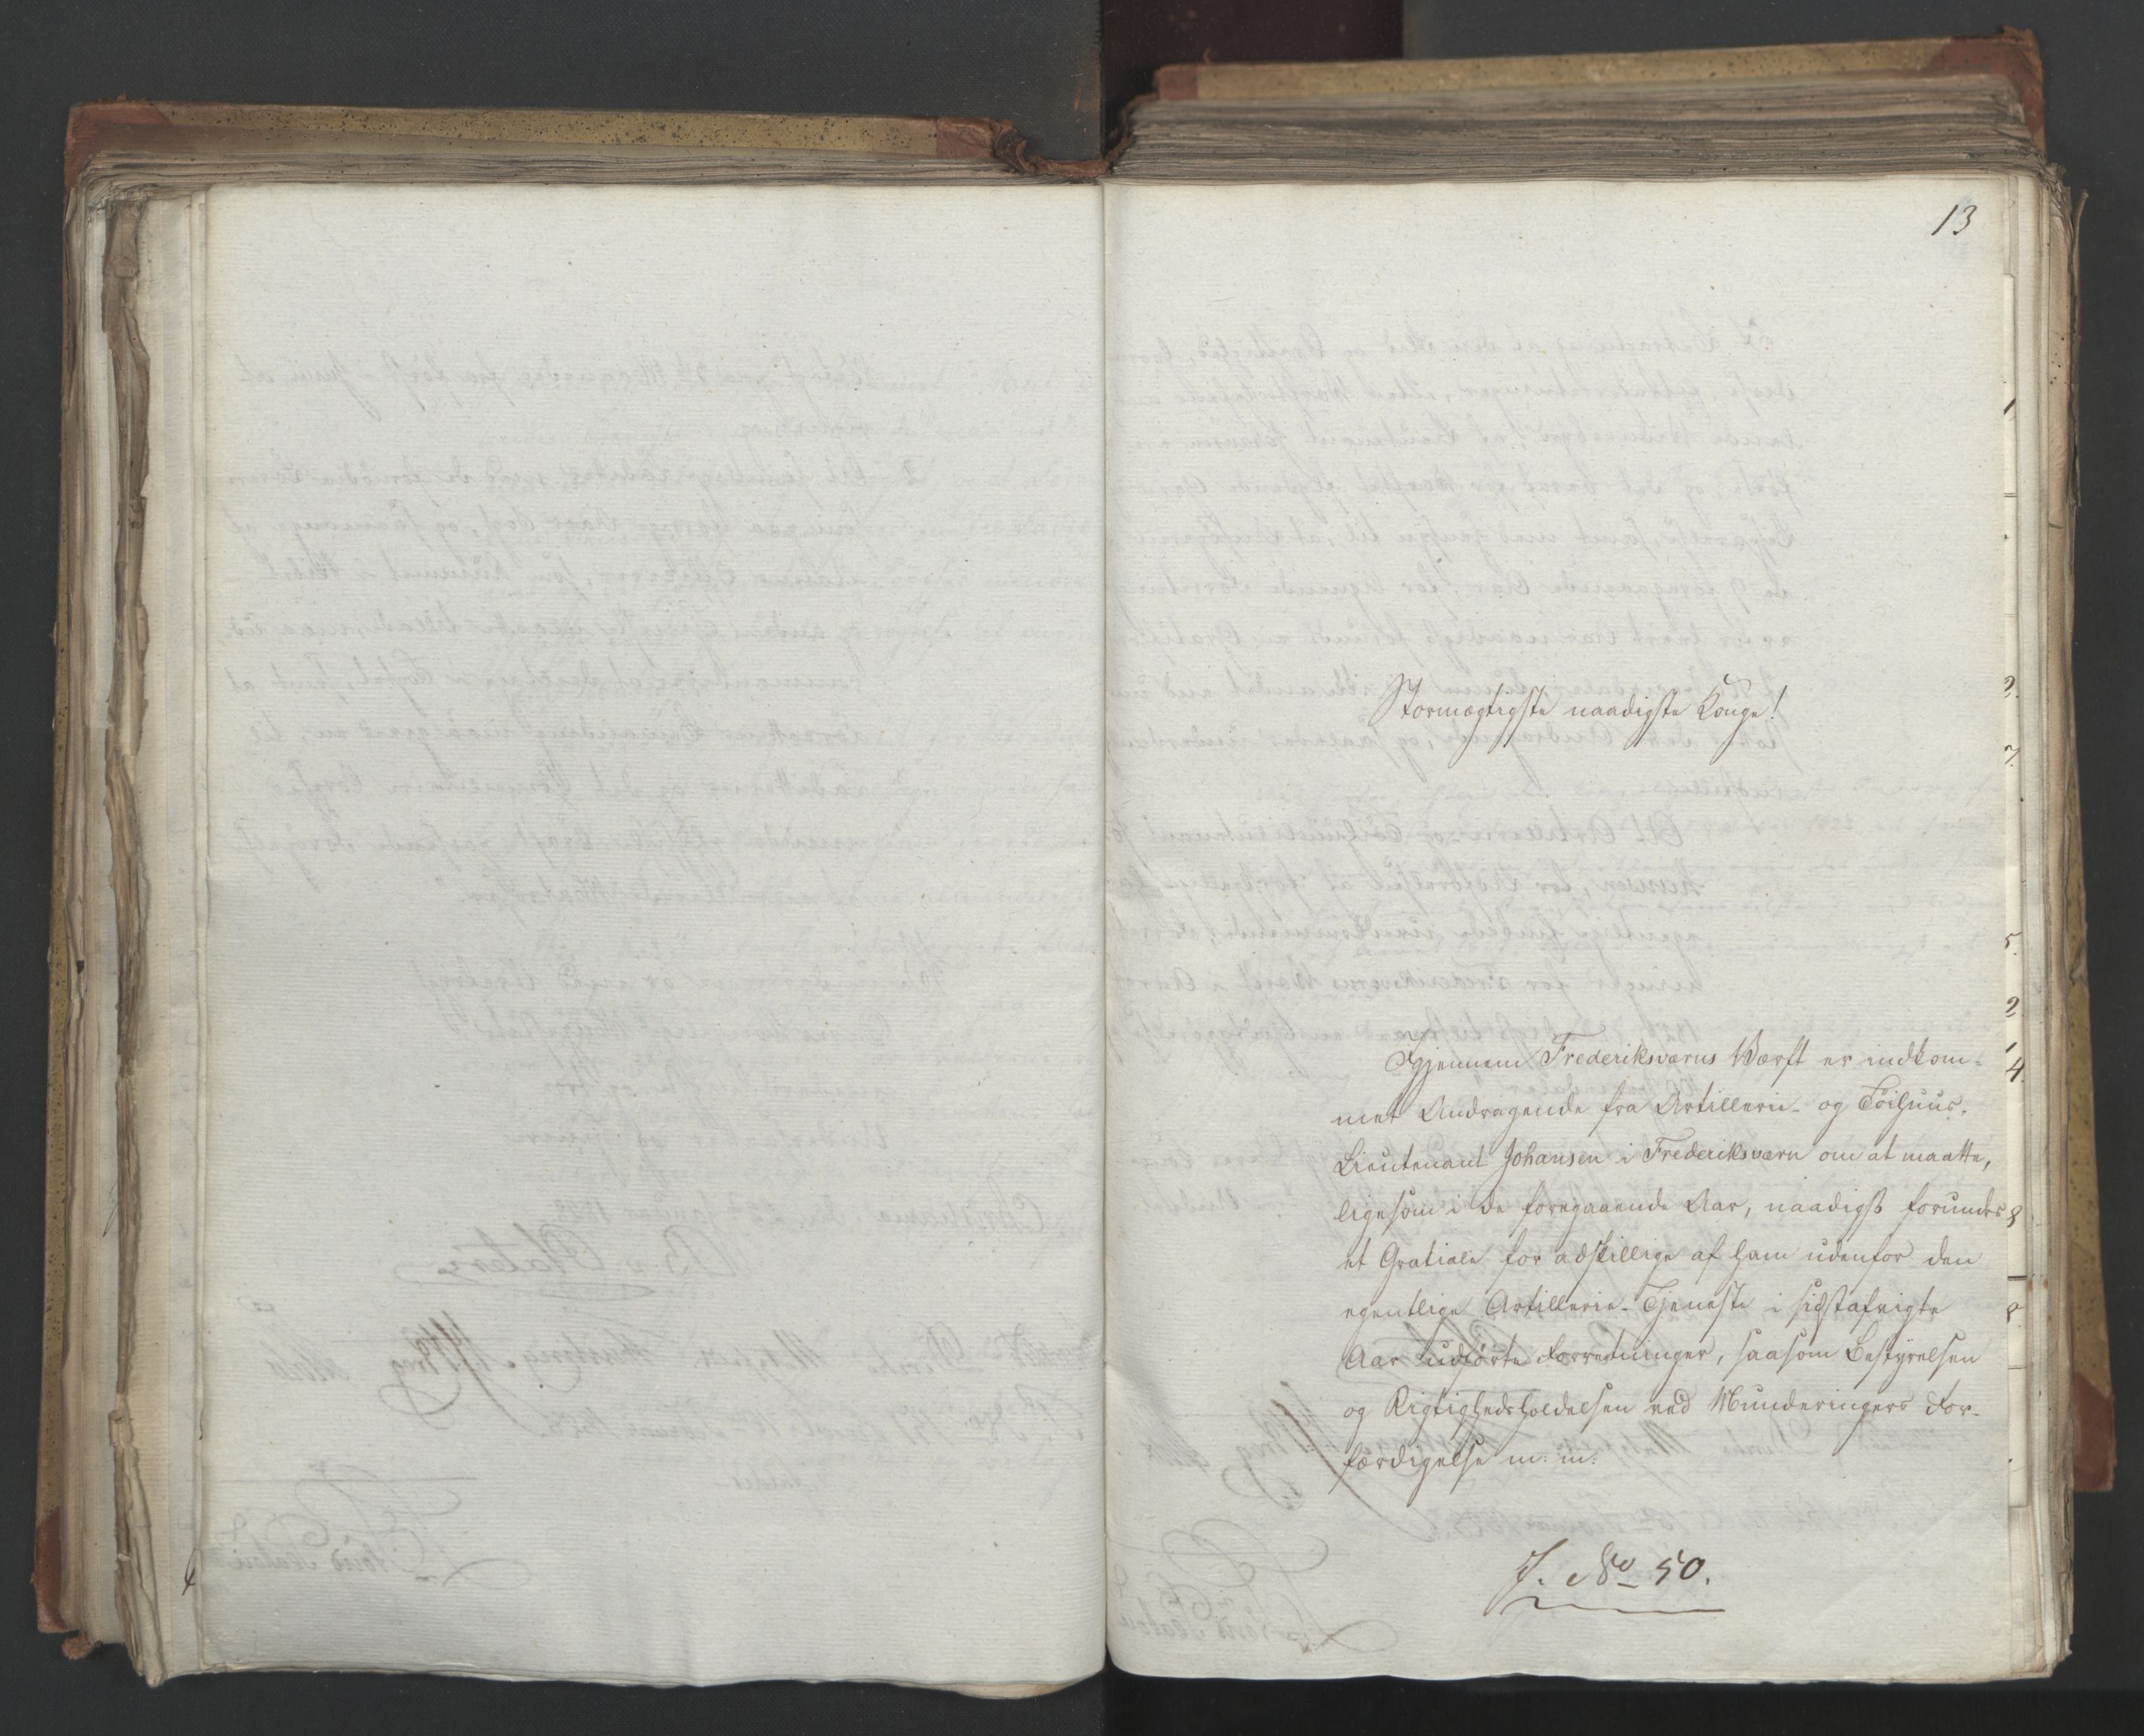 13
Stormægtigste naadigste Konge!
Igjennem Frederiksværns Værft er indkom-
met Andragende fra Artillerie- og Tøihuus-
Lieutenant Johansen i Frederiksværn om at maatte,
ligesom i de foregaaende Aar, naadigst forundes
et Gratiale for adskillige af ham udenfor den
egentlige Artillerie-Tjeneste i sidstafvigte
Aar udførte Forretninger, saasom Bestyrelsen
og Rigtighedsholdelsen ved Munderingers For-
færdigelse m: m:
J. No 50.